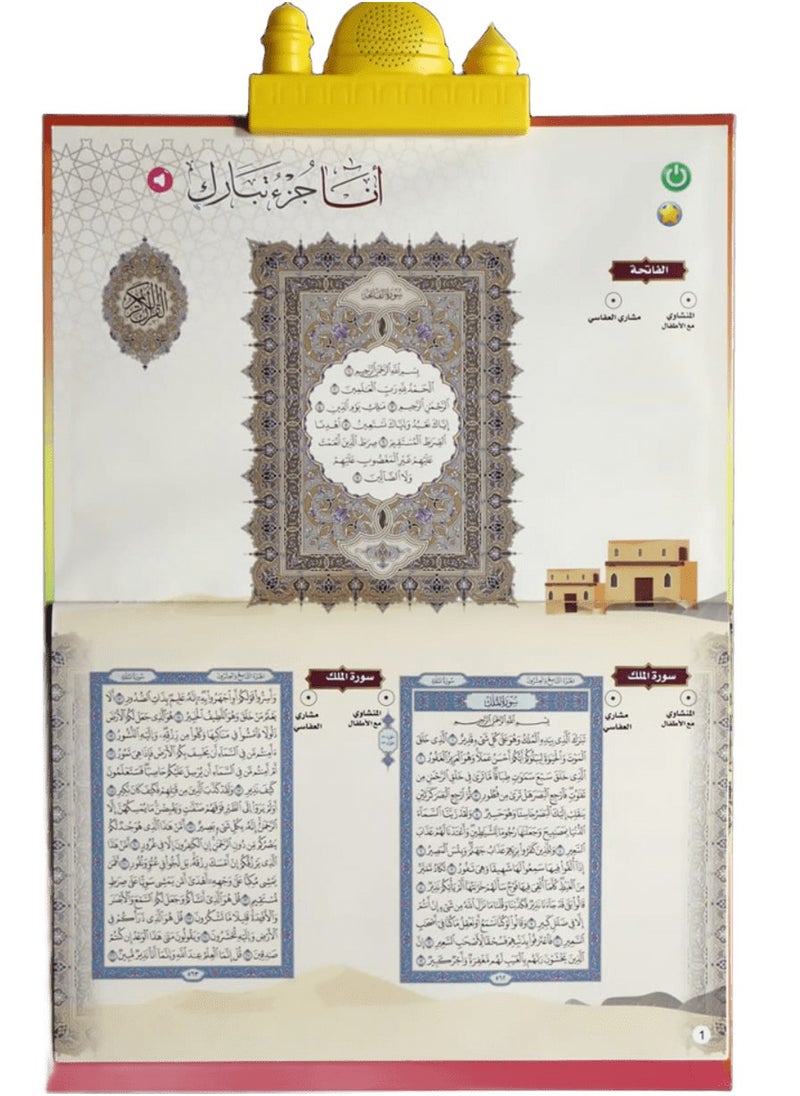 أنا جزء تبارك
القرآن الكريم
الفاتحة
المنشاوي مع الأطفال
مشاري العفاسي
سُورَةُ الفَاتِحَة
بِسْمِ ٱللَّهِ ٱلرَّحْمَٰنِ ٱلرَّحِيمِ ١
ٱلْحَمْدُ لِلَّهِ رَبِّ ٱلْعَٰلَمِينَ ٢
ٱلرَّحْمَٰنِ ٱلرَّحِيمِ ٣ مَٰلِكِ يَوْمِ ٱلدِّينِ ٤
إِيَّاكَ نَعْبُدُ وَإِيَّاكَ نَسْتَعِينُ ٥ ٱهْدِنَا
ٱلصِّرَٰطَ ٱلْمُسْتَقِيمَ ٦ صِرَٰطَ ٱلَّذِينَ أَنْعَمْتَ
عَلَيْهِمْ غَيْرِ ٱلْمَغْضُوبِ عَلَيْهِمْ
وَلَا ٱلضَّآلِّينَ ٧
سورة الملك
المنشاوي مع الأطفال
مشاري العفاسي
الجزء التاسع والعشرون
سورة الملك
سُورَةُ المُلْكِ
بِسْمِ ٱللَّهِ ٱلرَّحْمَٰنِ ٱلرَّحِيمِ
تَبَٰرَكَ ٱلَّذِى بِيَدِهِ ٱلْمُلْكُ وَهُوَ عَلَىٰ كُلِّ شَىْءٍ قَدِيرٌ ١ ٱلَّذِى خَلَقَ
ٱلْمَوْتَ وَٱلْحَيَوٰةَ لِيَبْلُوَكُمْ أَيُّكُمْ أَحْسَنُ عَمَلًا وَهُوَ ٱلْعَزِيزُ ٱلْغَفُورُ ٢
ٱلَّذِى خَلَقَ سَبْعَ سَمَٰوَٰتٍ طِبَاقًا مَّا تَرَىٰ فِى خَلْقِ ٱلرَّحْمَٰنِ مِن
تَفَٰوُتٍ فَٱرْجِعِ ٱلْبَصَرَ هَلْ تَرَىٰ مِن فُطُورٍ ٣ ثُمَّ ٱرْجِعِ ٱلْبَصَرَ كَرَّتَيْنِ
يَنقَلِبْ إِلَيْكَ ٱلْبَصَرُ خَاسِئًا وَهُوَ حَسِيرٌ ٤ وَلَقَدْ زَيَّنَّا ٱلسَّمَآءَ
ٱلدُّنْيَا بِمَصَٰبِيحَ وَجَعَلْنَٰهَا رُجُومًا لِّلشَّيَٰطِينِ وَأَعْتَدْنَا لَهُمْ عَذَابَ
ٱلسَّعِيرِ ٥ وَلِلَّذِينَ كَفَرُوا۟ بِرَبِّهِمْ عَذَابُ جَهَنَّمَ وَبِئْسَ ٱلْمَصِيرُ ٦
إِذَآ أُلْقُوا۟ فِيهَا سَمِعُوا۟ لَهَا شَهِيقًا وَهِىَ تَفُورُ ٧ تَكَادُ تَمَيَّزُ
مِنَ ٱلْغَيْظِ كُلَّمَآ أُلْقِىَ فِيهَا فَوْجٌ سَأَلَهُمْ خَزَنَتُهَآ أَلَمْ يَأْتِكُمْ نَذِيرٌ ٨
قَالُوا۟ بَلَىٰ قَدْ جَآءَنَا نَذِيرٌ فَكَذَّبْنَا وَقُلْنَا مَا نَزَّلَ ٱللَّهُ مِن شَىْءٍ إِنْ أَنتُمْ
إِلَّا فِى ضَلَٰلٍ كَبِيرٍ ٩ وَقَالُوا۟ لَوْ كُنَّا نَسْمَعُ أَوْ نَعْقِلُ مَا كُنَّا فِىٓ أَصْحَٰبِ
ٱلسَّعِيرِ ١٠ فَٱعْتَرَفُوا۟ بِذَنۢبِهِمْ فَسُحْقًا لِّأَصْحَٰبِ ٱلسَّعِيرِ ١١ إِنَّ
ٱلَّذِينَ يَخْشَوْنَ رَبَّهُم بِٱلْغَيْبِ لَهُم مَّغْفِرَةٌ وَأَجْرٌ كَبِيرٌ ١٢
٥٦٢
سورة الملك
المنشاوي مع الأطفال
مشاري العفاسي
الجزء التاسع والعشرون
سورة الملك
وَأَسِرُّوا۟ قَوْلَكُمْ أَوِ ٱجْهَرُوا۟ بِهِۦٓ إِنَّهُۥ عَلِيمٌۢ بِذَاتِ ٱلصُّدُورِ ١٣ أَلَا
يَعْلَمُ مَنْ خَلَقَ وَهُوَ ٱللَّطِيفُ ٱلْخَبِيرُ ١٤ هُوَ ٱلَّذِى جَعَلَ لَكُمُ ٱلْأَرْضَ
ذَلُولًا فَٱمْشُوا۟ فِى مَنَاكِبِهَا وَكُلُوا۟ مِن رِّزْقِهِۦ وَإِلَيْهِ ٱلنُّشُورُ ١٥
ءَأَمِنتُم مَّن فِى ٱلسَّمَآءِ أَن يَخْسِفَ بِكُمُ ٱلْأَرْضَ فَإِذَا هِىَ تَمُورُ ١٦
أَمْ أَمِنتُم مَّن فِى ٱلسَّمَآءِ أَن يُرْسِلَ عَلَيْكُمْ حَاصِبًا فَسَتَعْلَمُونَ
كَيْفَ نَذِيرِ ١٧ وَلَقَدْ كَذَّبَ ٱلَّذِينَ مِن قَبْلِهِمْ فَكَيْفَ كَانَ نَكِيرِ ١٨
أَوَلَمْ يَرَوْا۟ إِلَى ٱلطَّيْرِ فَوْقَهُمْ صَٰٓفَّٰتٍ وَيَقْبِضْنَ مَا يُمْسِكُهُنَّ إِلَّا
ٱلرَّحْمَٰنُ إِنَّهُۥ بِكُلِّ شَىْءٍۭ بَصِيرٌ ١٩ أَمَّنْ هَٰذَا ٱلَّذِى هُوَ جُندٌ لَّكُمْ
يَنصُرُكُم مِّن دُونِ ٱلرَّحْمَٰنِ إِنِ ٱلْكَٰفِرُونَ إِلَّا فِى غُرُورٍ ٢٠ أَمَّنْ هَٰذَا
ٱلَّذِى يَرْزُقُكُمْ إِنْ أَمْسَكَ رِزْقَهُۥ بَل لَّجُّوا۟ فِى عُتُوٍّ وَنُفُورٍ ٢١ أَفَمَن
يَمْشِى مُكِبًّا عَلَىٰ وَجْهِهِۦٓ أَهْدَىٰٓ أَمَّن يَمْشِى سَوِيًّا عَلَىٰ صِرَٰطٍ
مُّسْتَقِيمٍ ٢٢ قُلْ هُوَ ٱلَّذِىٓ أَنشَأَكُمْ وَجَعَلَ لَكُمُ ٱلسَّمْعَ وَٱلْأَبْصَٰرَ
وَٱلْأَفْـِٔدَةَ قَلِيلًا مَّا تَشْكُرُونَ ٢٣ قُلْ هُوَ ٱلَّذِى ذَرَأَكُمْ فِى
ٱلْأَرْضِ وَإِلَيْهِ تُحْشَرُونَ ٢٤ وَيَقُولُونَ مَتَىٰ هَٰذَا ٱلْوَعْدُ إِن كُنتُمْ
صَٰدِقِينَ ٢٥ قُلْ إِنَّمَا ٱلْعِلْمُ عِندَ ٱللَّهِ وَإِنَّمَآ أَنَا۠ نَذِيرٌ مُّبِينٌ ٢٦
٥٦٣
1